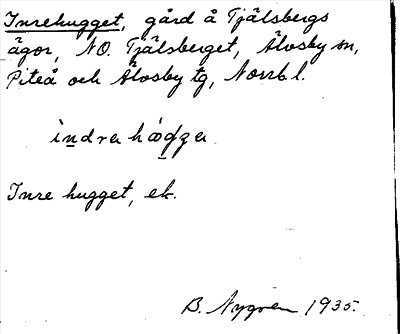 Inrehugget, gård å Tjälsbergs
ägor, NO. Tjälsberget, Älvsby sn,
Piteå och Älvsby tg, Norrb l.
Inre hugget, ek.
B. Nygren 1935.